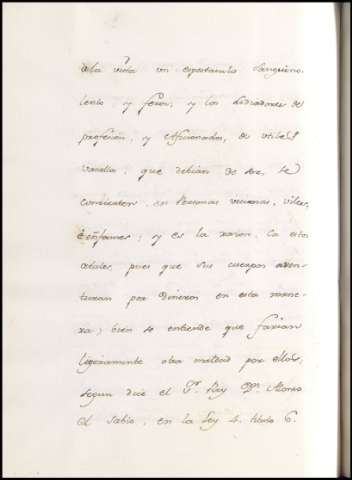 ála vista un espectaculo Sangrino-
lento, y feroz, y los Lidiadores de
profesion, y Afficionados, de utiles
Vasallos, que debian de ser, se
convierten en Personas viciosas, viles,
é infames; y es la razon. Ca estos
atales, pues que sus cuerpos aven-
turan por Dineros en esta mane-
ra; bien se entiende que farian
ligeramente otra maldad por ellos,
segun dice el Sr. Rey Dn. Alonso
el Sabio, en la Ley 4. titulo 6.